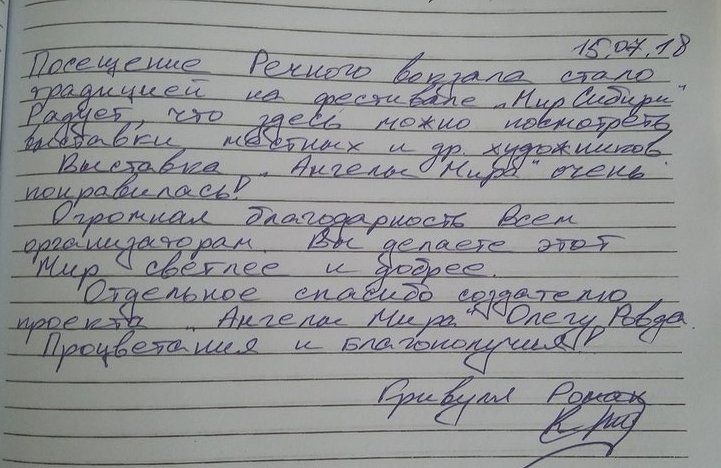 15.07.18
Посещение Речного вокзала стало
традицией на фестивале „Мир Сибири"
Радует, что здесь можно посмотреть
выставки местных и др. художников
Выставка „Ангелы Мира" очень
понравилась!
Огромная благодарность всем
организаторам. Вы делаете этот
Мир светлее и добрее.
Отдельное спасибо создателю
проекта „Ангелы Мира" Олегу Ровда.
Процветания и благополучия!
Роман